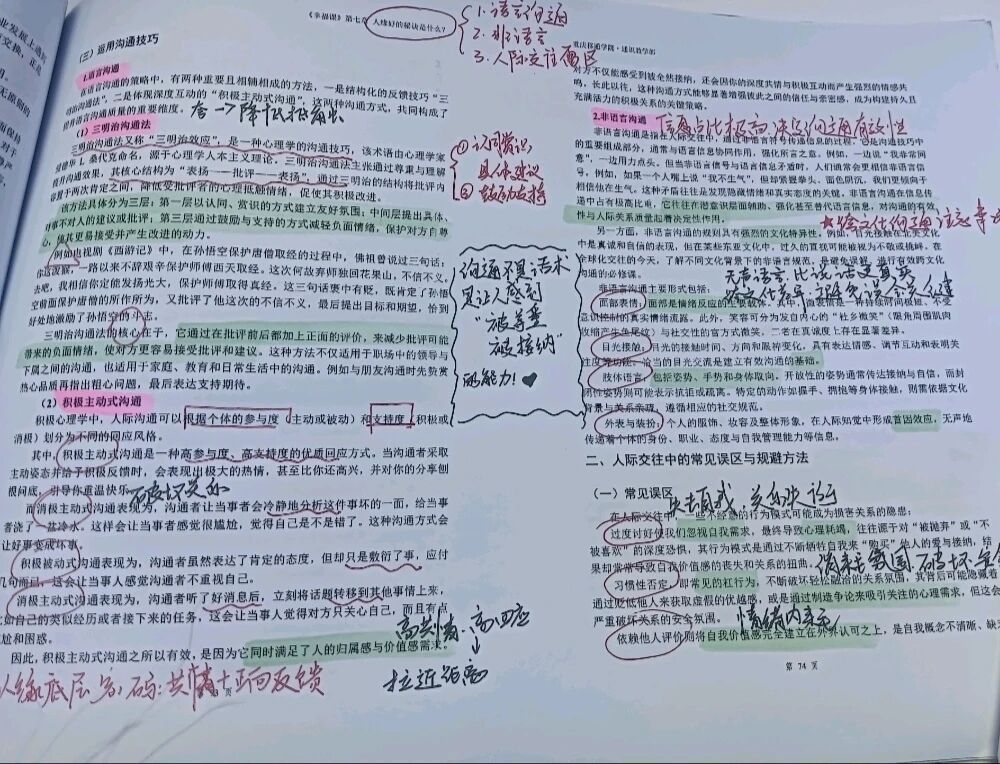 《幸福课》第七章 人缘好的秘诀是什么？
1. 语言沟通
2. 非语言
3. 人际交往雷区
（三）运用沟通技巧
1.语言沟通
在语言沟通的策略中，有两种重要且相辅相成的方法，一是结构化的反馈技巧“三
明治沟通法”，二是体现深度互动的“积极主动式沟通”，这两种沟通方式，共同构成了
提升语言沟通质量的重要维度。
（1）三明治沟通法
三明治沟通法又称“三明治效应”，是一种心理学的沟通技巧，该术语由心理学家
L. 桑代克命名，源于心理学人本主义理论。三明治沟通法主张通过尊重与理解
提升沟通效果，其核心结构为“表扬——批评——表扬”，通过三明治的结构将批评内
容置于两次肯定之间，降低受批评者的心理抵触情绪，促使其积极改进。
该方法具体分为三层：第一层以认同、赏识的方式建立友好氛围；中间层提出具体、
对事不对人的建议或批评；第三层通过鼓励与支持的方式减轻负面情绪，保护对方自尊
心，使其更易接受并产生改进的动力。
例如电视剧《西游记》中，在孙悟空保护唐僧取经的过程中，佛祖曾说过三句话，
你这泼猴，一路以来不辞艰辛保护师傅西天取经。这次何故弃师独回花果山，不信不义，
去吧，我相信你定能发扬光大，保护师傅取得真经。这三句话褒中有贬，既肯定了孙悟
空前面保护唐僧的所作所为，又批评了他这次的不信不义，最后提出目标和期望，恰到
好处地激励了孙悟空的斗志。
三明治沟通法的核心在于，它通过在批评前后都加上正面的评价，来减少批评可能
带来的负面情绪，使对方更容易接受批评和建议。这种方法不仅适用于职场中的领导与
下属之间的沟通，也适用于家庭、教育和日常生活中的沟通。例如与朋友沟通时先赞赏
热心品质再指出粗心问题，最后表达支持期待。
（2）积极主动式沟通
积极心理学中，人际沟通可以根据个体的参与度（主动或被动）和支持度（积极或
消极）划分为不同的回应风格。
其中，积极主动式沟通是一种高参与度、高支持度的优质回应方式。当沟通者采取
主动姿态并给予积极反馈时，会表现出极大的热情，甚至比你还高兴，并对你的分享刨
根问底，引导你重温快乐。
破坏关系
而消极主动式沟通表现为，沟通者让当事者会冷静地分析这件事坏的一面，给当事
者浇了一盆冷水。这样会让当事者感觉很尴尬，觉得自己是不是错了。这种沟通方式会
让好事变成坏事。
积极被动式沟通表现为，沟通者虽然表达了肯定的态度，但却只是敷衍了事，应付
几句而已，这会让当事人感觉沟通者不重视自己。
消极主动式沟通表现为，沟通者听了好消息后，立刻将话题转移到其他事情上来，
比如自己的类似经历或者接下来的任务，这会让当事人觉得对方只关心自己，而且有点
尴尬和困惑。
因此，积极主动式沟通之所以有效，是因为它同时满足了人的归属感与价值感需求。
高共情、高回应
拉近距离
人缘底层密码：共情+正向反馈
页
①认同赏识
具体建议
鼓励支持
沟通不是话术
是让人感到
“被尊重
被接纳”
的能力！
重庆移通学院·通识教学部
对方不仅能感受到被全然接纳，还会因你的深度共情与积极互动而产生强烈的情感共
鸣，长此以往，这种沟通方式能够显著增强彼此之间的信任与亲密感，成为构建持久且
充满活力的积极关系的关键策略。
2.非语言沟通
信息占比极高，决定沟通有效性
非语言沟通是指在人际交往中，通过非语言符号传递信息的过程，它是沟通技巧中
的重要组成部分，通常与语言信息协同作用，强化所言之意。例如，一边说“我非常同
意”，一边用力点头。但当非语言信号与语言信息矛盾时，人们通常会更相信非语言信
号，例如，如果一个人嘴上说“我不生气”，但却紧握拳头、面色阴沉，我们更倾向于
相信他在生气。这种矛盾往往是发现隐藏情绪和真实态度的关键，非语言沟通在信息传
递中占有极高比重，它往往在潜意识层面辅助、强化甚至替代语言信息，对沟通的有效
性与人际关系质量起着决定性作用。
另一方面，非语言沟通的规则具有强烈的文化特异性。例如，目光接触在北美文化
中是真诚和自信的表现，但在某些东亚文化中，过久的直视可能被视为不敬或挑衅。在
全球化交往的今天，了解不同文化背景下的非语言规范，是避免误解、进行有效跨文化
沟通的必修课。
无声语言，比说话更真实
非语言沟通主要形式包括：
面部表情：面部是情绪反应的主要载体，其中，微表情是一种持续时间极短、不受
意识控制的真实情绪流露。此外，笑容可分为发自内心的“社乡微笑”（眼角周围肌肉
收缩产生鱼尾纹）与社交性的官方式微笑，二者在真诚度上存在显著差异。
目光接触：目光的接触时间、方向和眼神变化，具有表达情感、调节互动和表明关
注度等功能，恰当的目光交流是建立有效沟通的基础。
肢体语言：包括姿势、手势和身体取向。开放性的姿势通常传达接纳与自信，而封
闭性姿势则可能表示抗拒或疏离。特定的动作如握手、拥抱等身体接触，则需依据文化
背景与关系亲疏，遵循相应的社交规范。
外表与装扮：个人的服饰、妆容及整体形象，在人际知觉中形成首因效应，无声地
传递着个体的身份、职业、态度与自我管理能力等信息。
二、人际交往中的常见误区与规避方法
（一）常见误区
失去自我，关系决
在人际交往中，一些不经意的行为模式可能成为损害关系的隐患：
过度讨好使我们忽视自我需求，最终导致心理耗竭，往往源于对“被抛弃”或“不
被喜欢”的深度恐惧，其行为模式是通过不断牺牲自我来“购买”他人的爱与接纳，结
果却常常导致自我价值感的丧失和关系的扭曲。
习惯性否定，即常见的杠行为，不断破坏轻松融洽的关系氛围，其背后可能隐藏着
通过贬低他人来获取虚假的优越感，或是通过制造争论来吸引关注的心理需求，但这会
严重破坏关系的安全氛围。
情绪内耗
依赖他人评价则将自我价值感完全建立在外界认可之上，是自我概念不清晰、缺
第 74 页